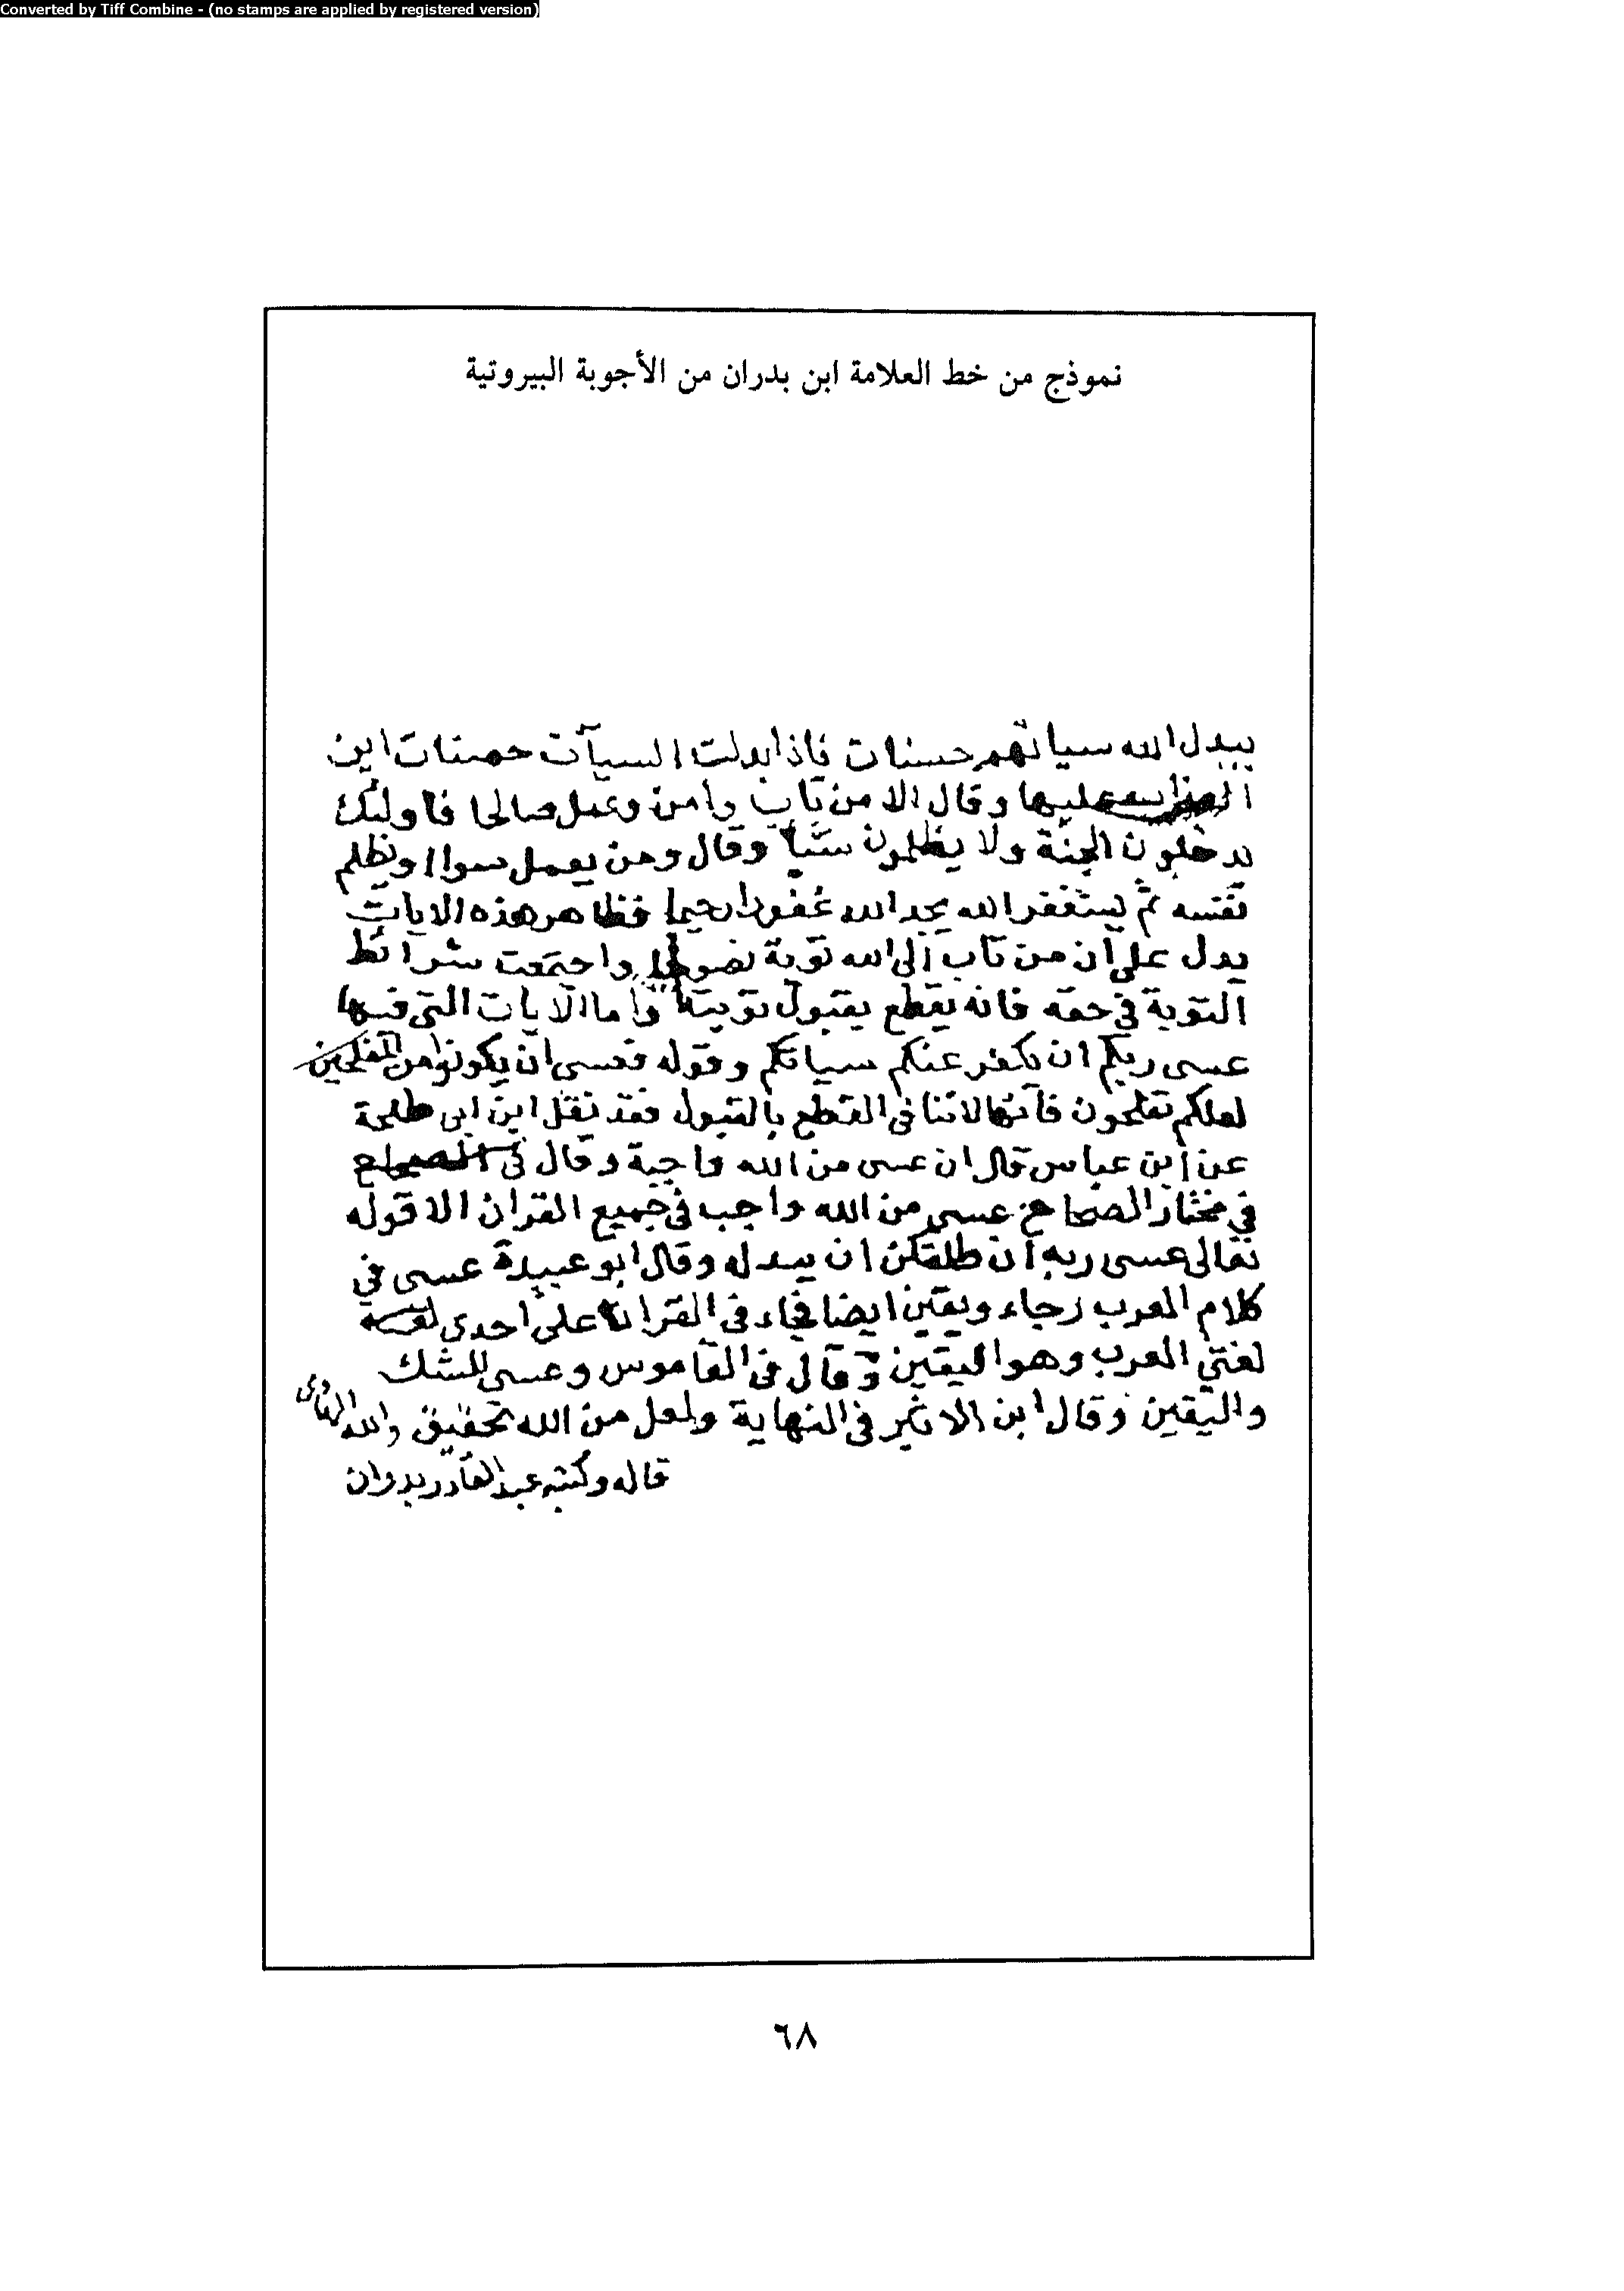 Converted by Tiff Combine - (no stamps are applied by registered version)
نموذج من خط العلامة ابن بدران من الأجوبة البيروتية
يبدل الله سياتهم حسنات فاذا بدلت السيآت حسنات اين
عليها وقال الا من تاب وامن وعمل صالحا فاولئك
يدخلون الجنة ولا يظلمون شيأ وقال ومن يعمل سوا او يظلم
نفسه ثم يستغفر الله يجد الله غفورا رحيما فظاهر هذه الايات
يدل على ان من تاب الى الله توبة نصوحا واجتمعت شرائط
التوبة في حقه فانه يقطع بقبول توبته واما الايات التي فيها
عسى ربكم ان يكفر عنكم سياتكم وقوله فعسى ان يكونوا من المفلحين
لعلكم تفلحون فانها لاتنافى القطع بالقبول فقد نقل ابن ابى طلحة
عن ابن عباس قال ان عسى من الله واجبة وقال فى الصحاح
في مختار الصحاح عسى من الله واجب فى جميع القران الا قوله
تعالى عسى ربه ان طلقكن ان يبدله وقال ابو عبيدة عسى في
كلام العرب رجاء ويقين ايضا فجاء فى القران على احدى
لغتي العرب وهو اليقين وقال فى القاموس وعسى للشك
واليقين وقال ابن الاثير فى النهاية ولعل من الله تحقيق والله الهادى
قاله وكتبه عبد القادر بدران
٦٨